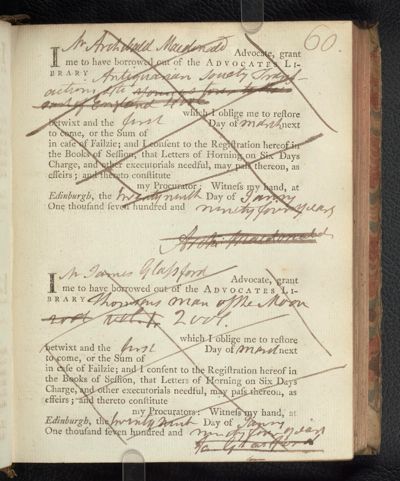 60.
I Mr Archibald Macdonald Advocate, grant
me to have borrowed out of the ADVOCATES LI-
BRARY Antiquarian Society Trans-
actions
of England
which I oblige me to reſtore
betwixt and the first Day of March next
to come, or the Sum of
in caſe of Failzie; and I conſent to the Regiſtration hereof in
the Books of Seſſion, that Letters of Horning on Six Days
Charge, and other executorials needful, may paſs thereon, as
effeirs; and thereto conſtitute
my Procurator: Witneſs my hand, at
Edinburgh, the twenty ninth Day of Janry
One thouſand ſeven hundred and ninety four years
Archd Macdonald
I Mr James Glassford Advocate, grant
me to have borrowed out of the ADVOCATES LI-
BRARY Thomsons man of the Moon
2 vol.
which I oblige me to reſtore
betwixt and the first Day of March next
to come, or the Sum of
in caſe of Failzie; and I conſent to the Regiſtration hereof in
the Books of Seſſion, that Letters of Horning on Six Days
Charge, and other executorials needful, may paſs thereon, as
effeirs; and thereto conſtitute
my Procurators: Witneſs my hand, at
Edinburgh, the twenty ninth Day of Janry
One thouſand ſeven hundred and ninety four years
Ja. Glassford